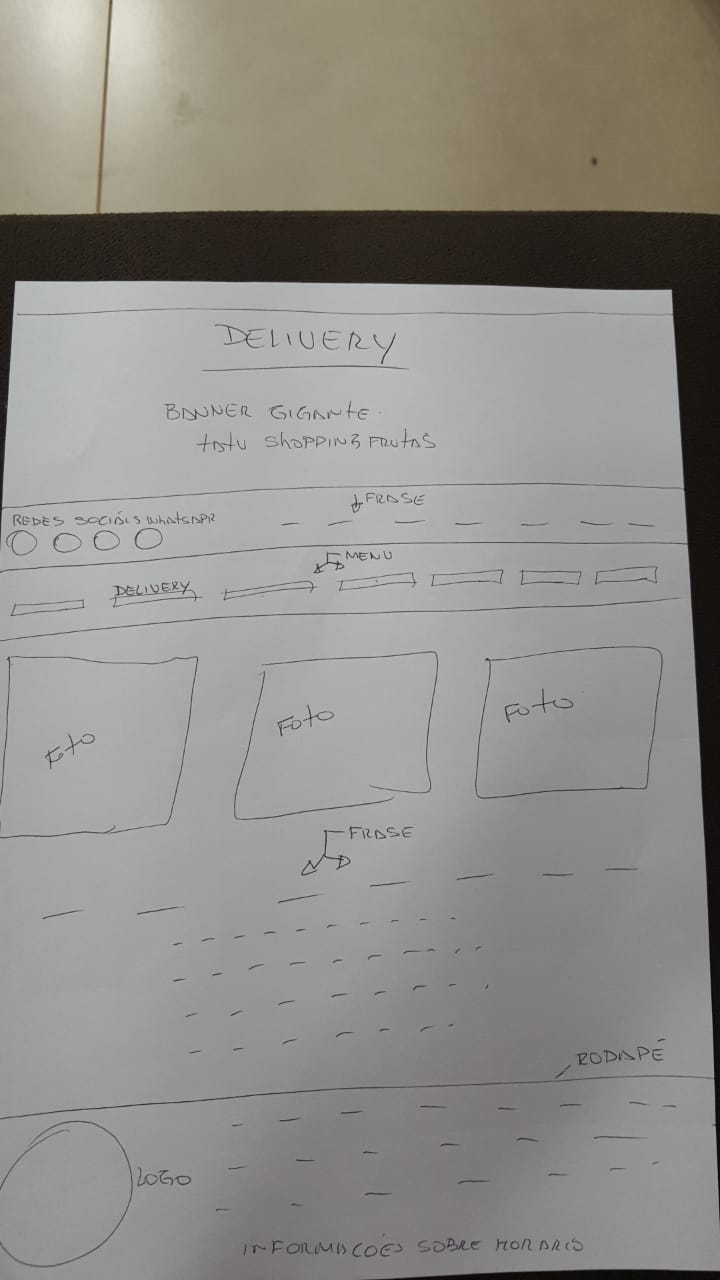 DELIVERY
BANNER GIGANTE.
TATU SHOPPING FRUTAS
FRASE
REDES SOCIAIS WHATSAPP
MENU
DELIVERY
FOTO
FOTO
FOTO
FRASE
RODAPÉ
LOGO
INFORMACÕES SOBRE HORARIS